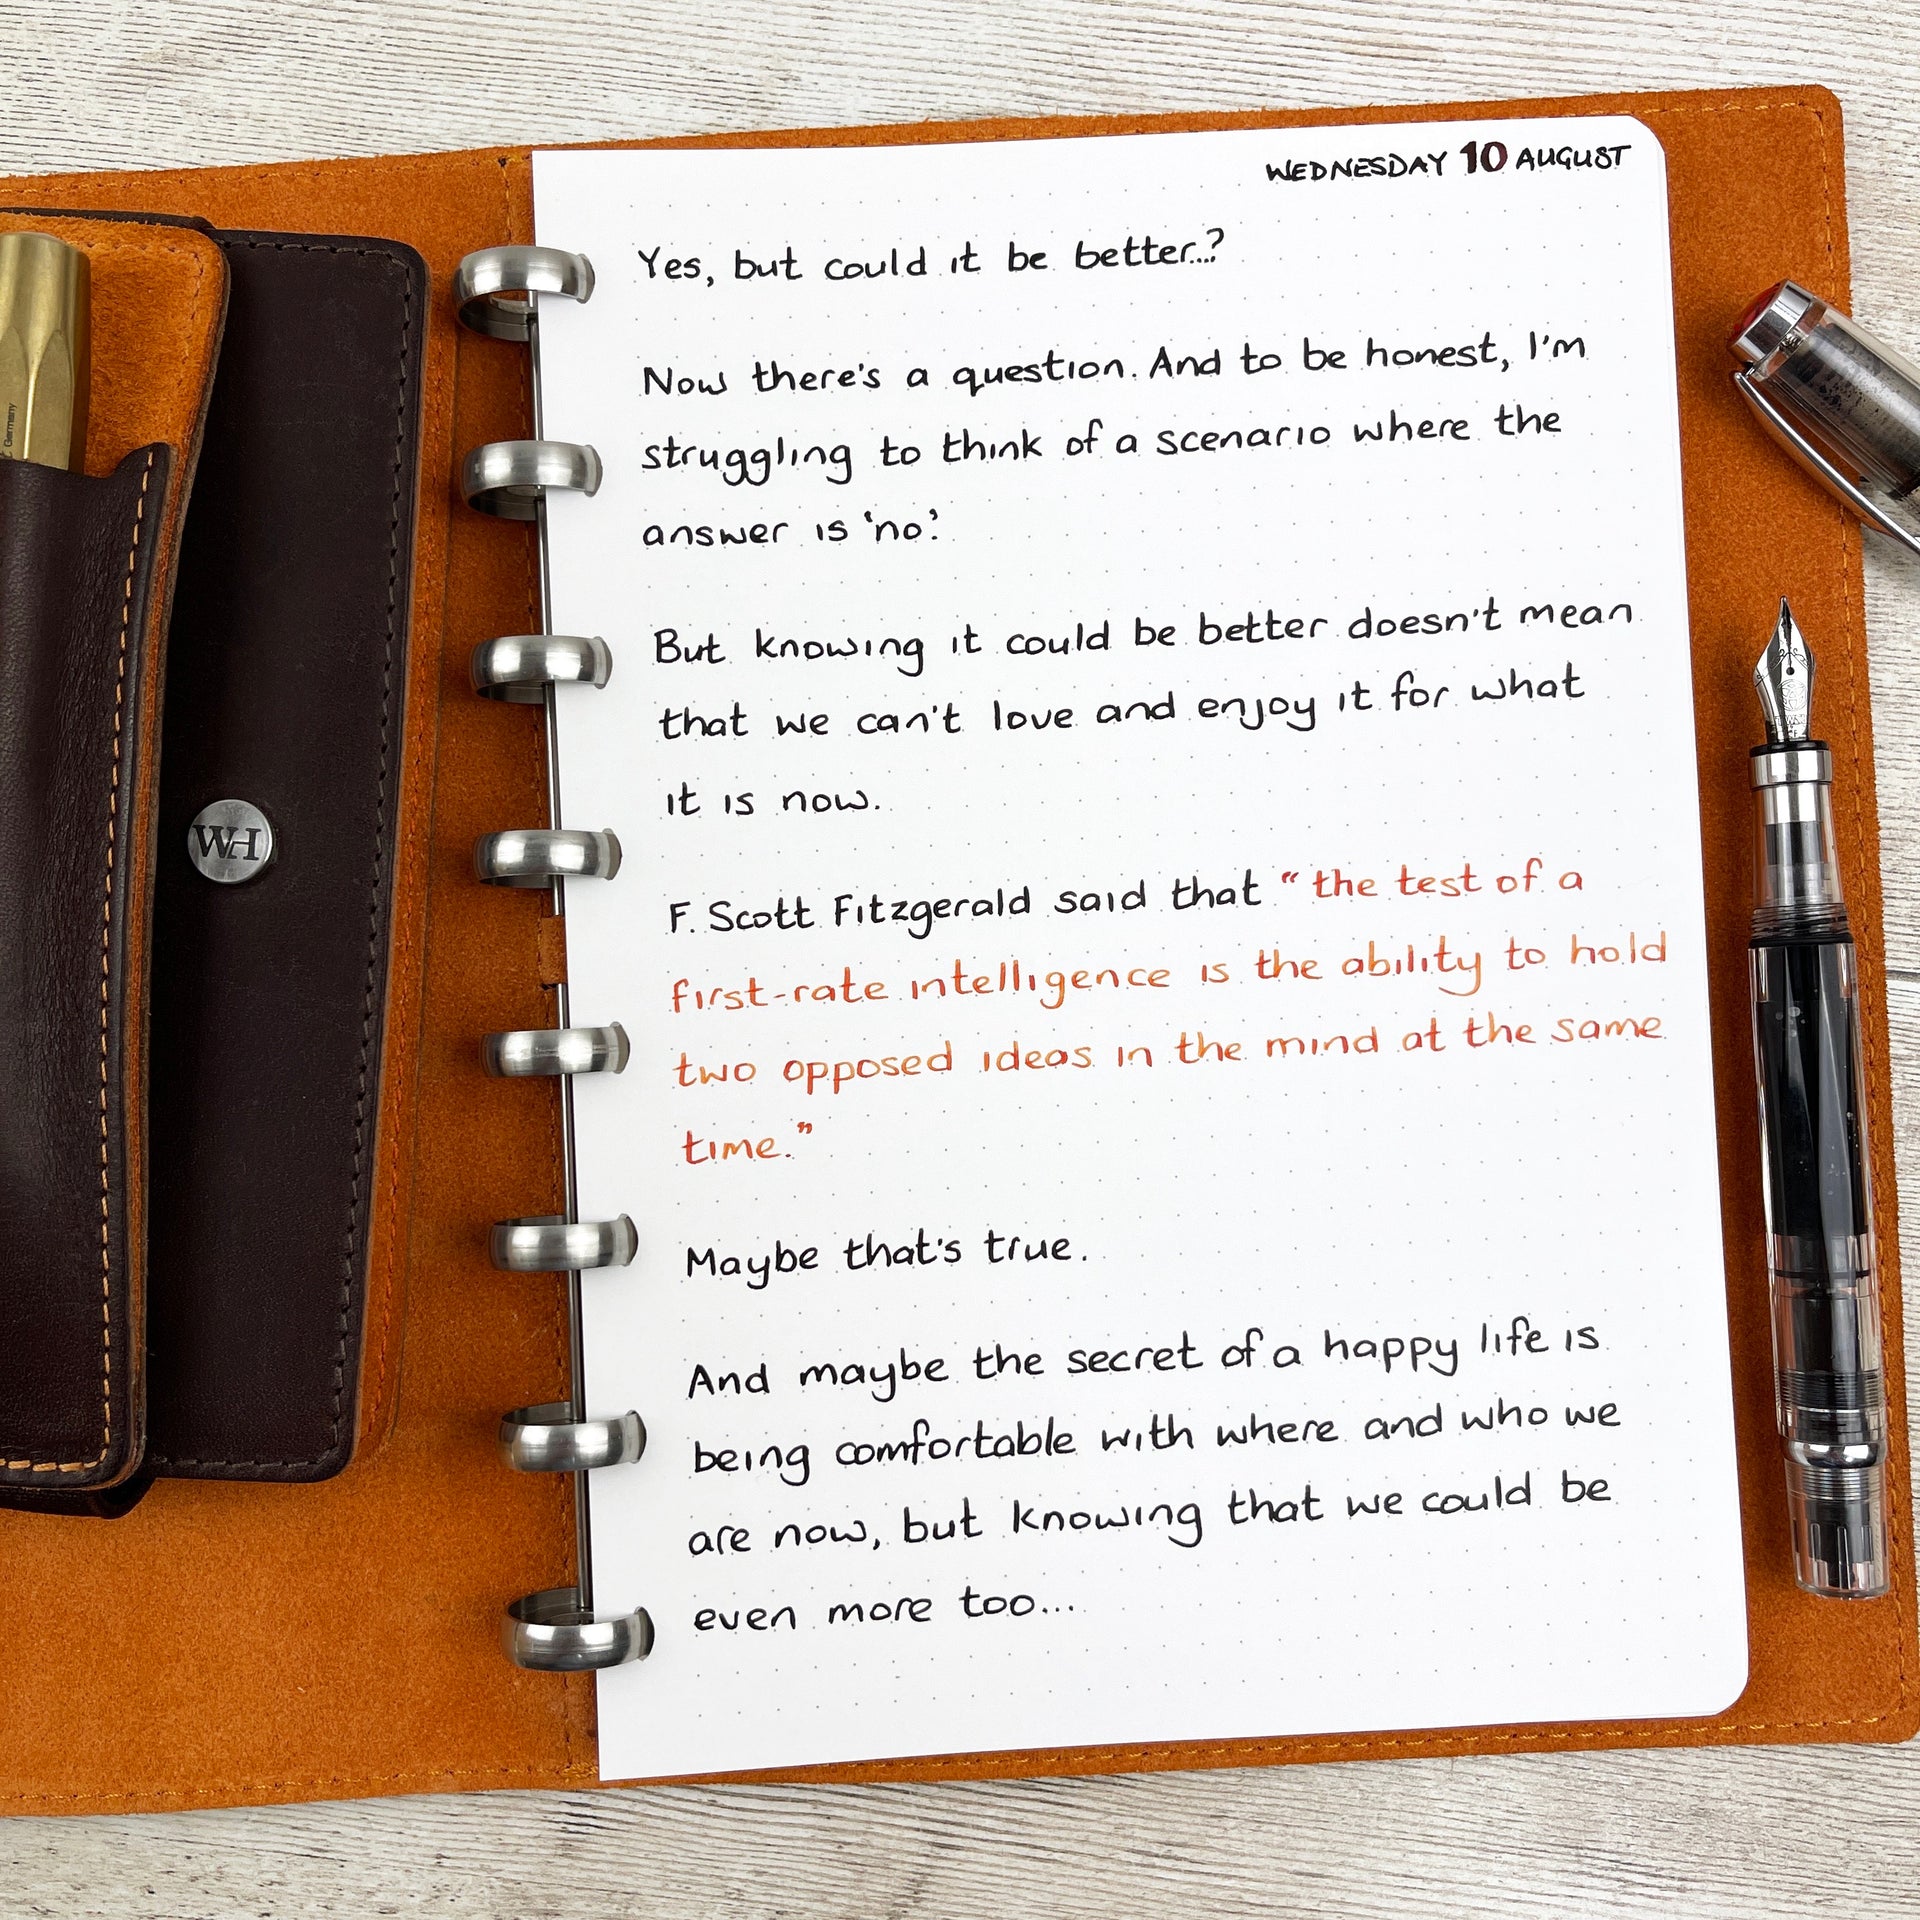 WEDNESDAY 10 AUGUST
Yes, but could it be better...?
Now there's a question. And to be honest, I'm
struggling to think of a scenario where the
answer is 'no'.
But knowing it could be better doesn't mean
that we can't love and enjoy it for what
it is now.
F. Scott Fitzgerald said that "the test of a
first-rate intelligence is the ability to hold
two opposed ideas in the mind at the same
time."
Maybe that's true.
And maybe the secret of a happy life is
being comfortable with where and who we
are now, but knowing that we could be
even more too...
WH
Germany